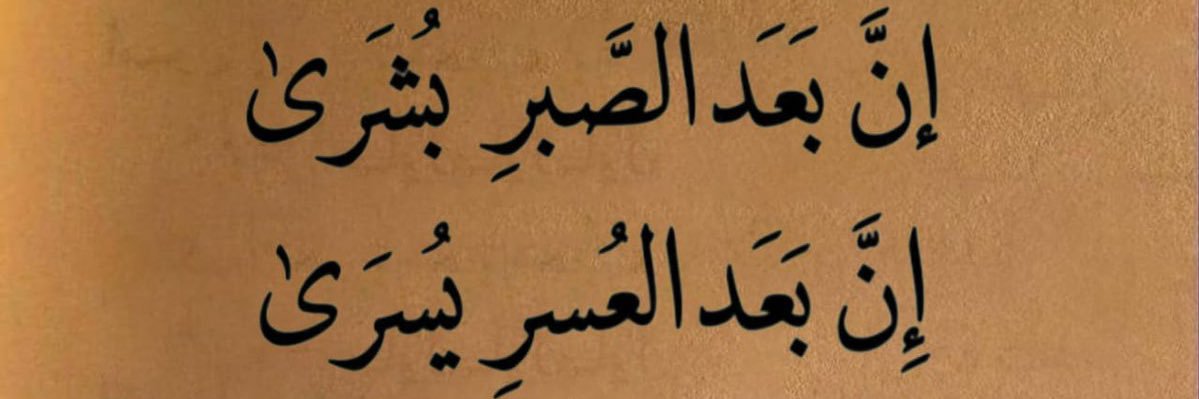 إنَّ بَعَدَ الصَّبرِ بُشَرَىٰ
إِنَّ بَعَدَ العُسرِ يُسرَىٰ